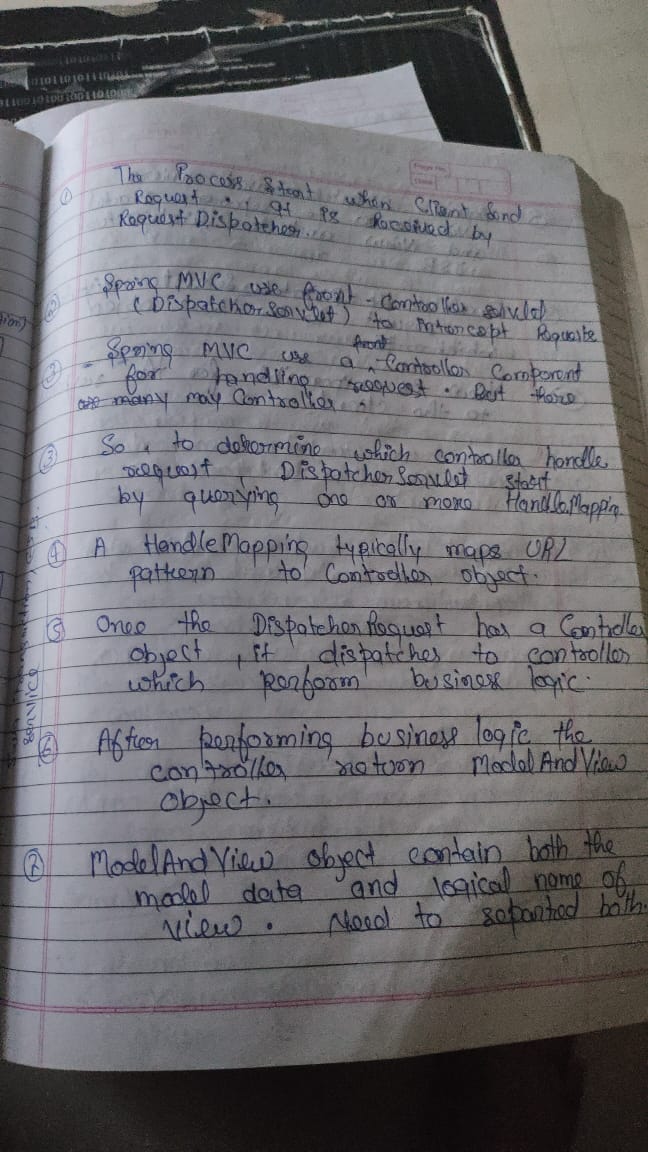 ① The Process Start when Client Send
Request. It is Received by
Request Dispatcher.
② Spring MVC use front-controller
(DispatcherServlet) to Intercept Requeste
③ Spring MVC use a front Controller Component
for handling request. But there
many may Controller.
③ So, to determine which controller handle
request, DispatcherServlet start
by querying one or more HandleMapping
④ A HandleMapping typically maps URL
pattern to Controller object.
⑤ Once the DispatcherRequest has a Controller
object, it dispatches to controller
which perform business logic.
⑥ After performing business logic the
controller return ModelAndView
object.
⑦ ModelAndView object contain both the
model data and logical name of
view. Need to separted both.
service